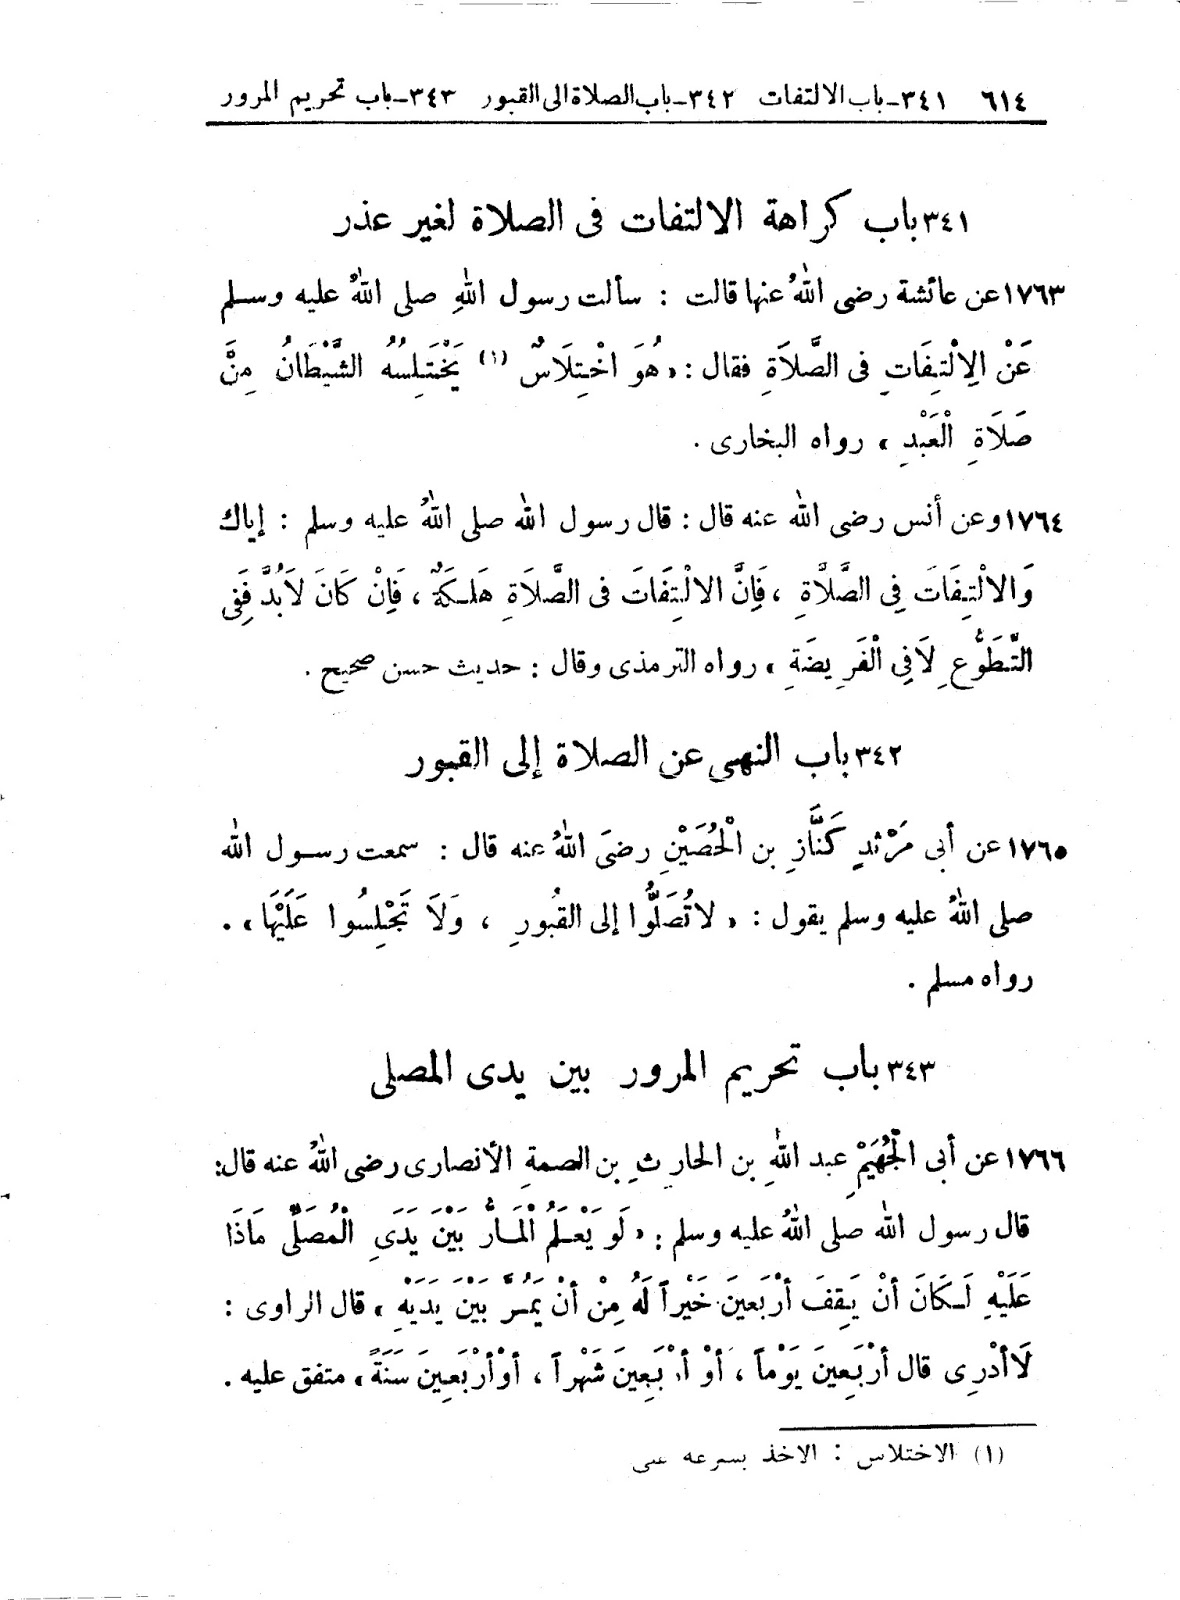 ٦١٤ ٣٤١-باب الالتفات ٣٤٢-باب الصلاة الى القبور ٣٤٣-باب تحريم المرور
٣٤١ باب كراهة الالتفات فى الصلاة لغير عذر
١٧٦٣ عن عائشة رضى اللهُ عنها قالت : سألت رسول اللهِ صلى اللهُ عليه وسلم
عَنْ الِالْتِفَاتِ فى الصَّلَاةِ فقال : « هُوَ اخْتِلَاسٌ (١) يَخْتَلِسُهُ الشَّيْطَانُ مِنْ
صَلَاةِ الْعَبْدِ » رواه البخارى .
١٧٦٤ وعن أنس رضى الله عنه قال : قال رسول الله صلى اللهُ عليه وسلم : إياك
وَالالْتِفَاتَ فِى الصَّلَاةِ ، فَإِنَّ الالْتِفَاتَ فى الصَّلَاةِ هَلَكَةٌ ، فَإِنْ كَانَ لَابُدَّ فَفِى
التَّطَوُّعِ لَافِى الْفَرِيضَةِ » رواه الترمذى وقال : حديث حسن صحيح .
٣٤٢ باب النهى عن الصلاة إلى القبور
١٧٦٥ عن أبى مَرْثَدٍ كَنَّازِ بن الْحُصَيْنِ رضىَ اللهُ عنه قال : سمعت رسول الله
صلى اللهُ عليه وسلم يقول : « لاتُصَلُّوا إلى القُبُورِ ، وَلَا تَجْلِسُوا عَلَيْهَا » .
رواه مسلم .
٣٤٣ باب تحريم المرور بين يدى المصلى
١٧٦٦ عن أبى الْجُهَيْمِ عبد اللهِ بن الحارثِ بن الصمةِ الأنصارى رضى اللهُ عنه قال:
قال رسول الله صلى اللهُ عليه وسلم : « لَو يَعْلَمُ الْمَارُّ بَيْنَ يَدَىِ الْمُصَلِّى مَاذَا
عَلَيْهِ لَكَانَ أَنْ يَقِفَ أَرْبَعِينَ خَيْراً لَهُ مِنْ أَنْ يَمُرَّ بَيْنَ يَدَيْهِ » قال الراوى :
لَاأَدْرِى قال أَرْبَعِينَ يَوْماً ، أَوْ أَرْبَعِينَ شَهْراً ، أَوْأَرْبَعِينَ سَنَةً » متفق عليه .
(١) الاختلاس : الاخذ بسرعه